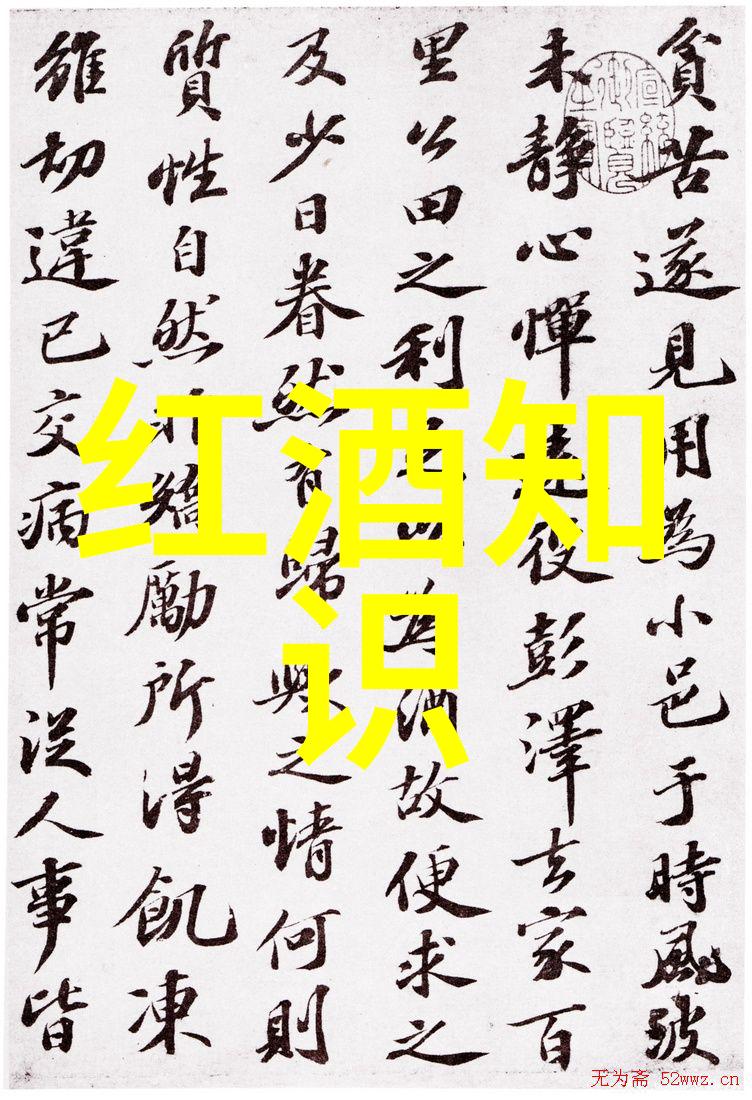 貧苦遂見用為小邑于時風波
未靜心憚遠役彭澤去家百
里公田之利足以為酒故便求之
及少日眷然有歸歟之情何則
質性自然非矯勵所得飢凍
雖切違己交病常從人事皆
红酒知
识
无为斋 52wwz.cn